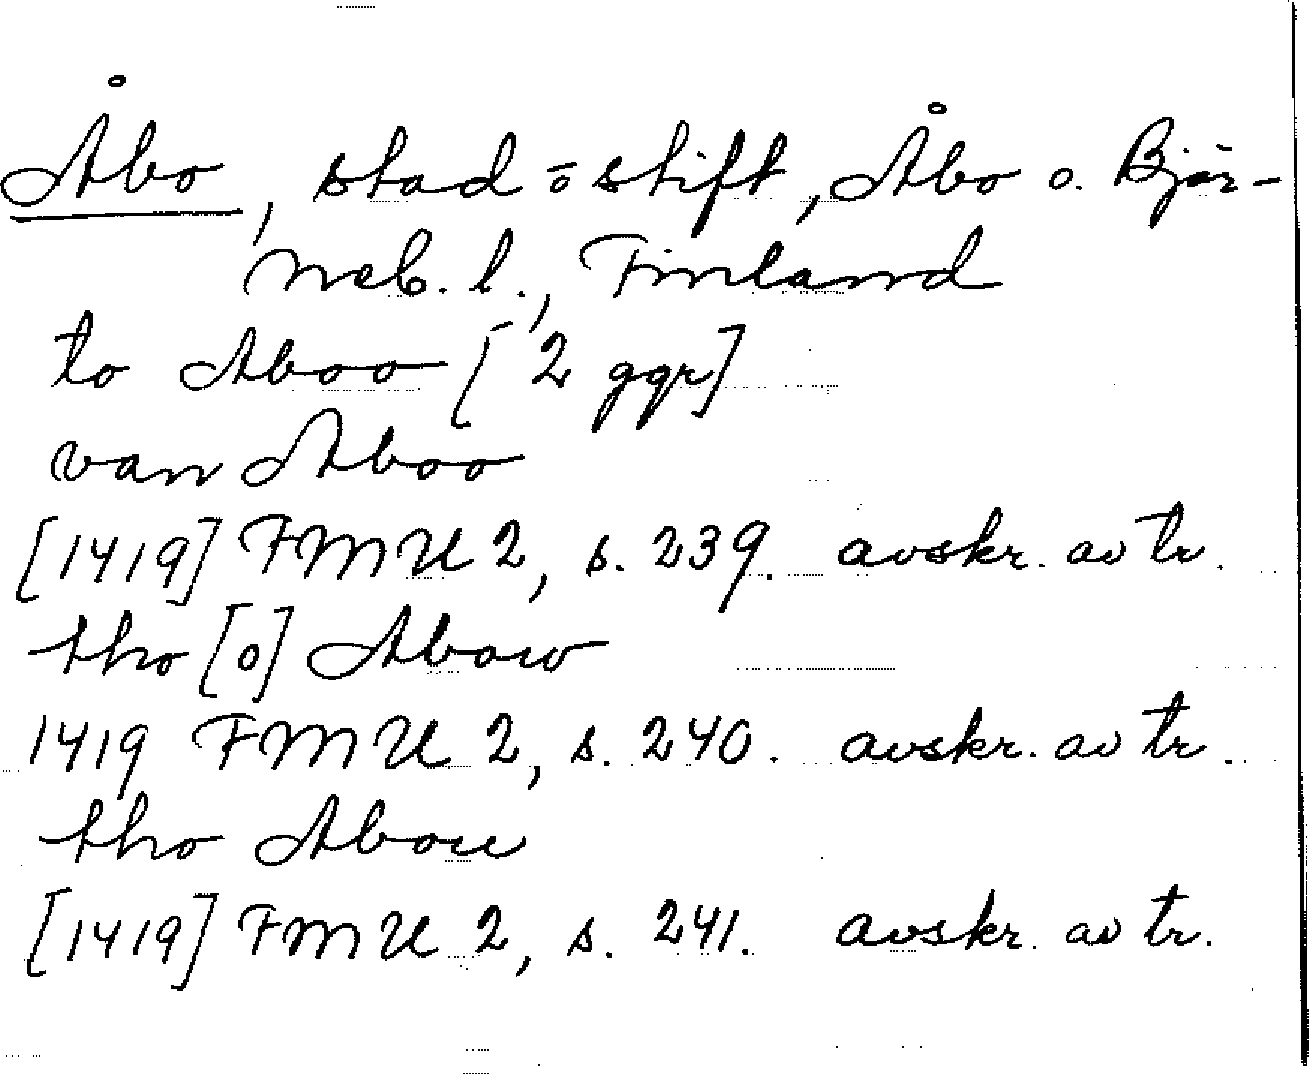 Åbo, stad o stift, Åbo o. Björ-
neb. l., Finland
to Aboo [2 ggr]
van Aboo
[1419] FMU 2, s. 239. avskr. av tr.
tho [o] Abow
1419 FMU 2, s. 240. avskr. av tr.
tho Abou
[1419] FMU 2, s. 241. avskr. av tr.